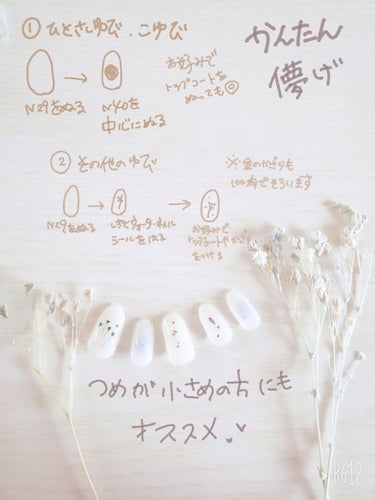 ① ひとさしゆび、こゆび
かんたん
儚げ
N29をぬる
N40を
中心にぬる
お好みで
トップコートを
ぬっても◎
② その他のゆび
※金のかざりも
100均でそろいます
N29をぬる
しずくウォーターネイル
シールをはる
お好みで
トップコートやかざり
をつける
つめが小さめの方にも
オススメ
B612